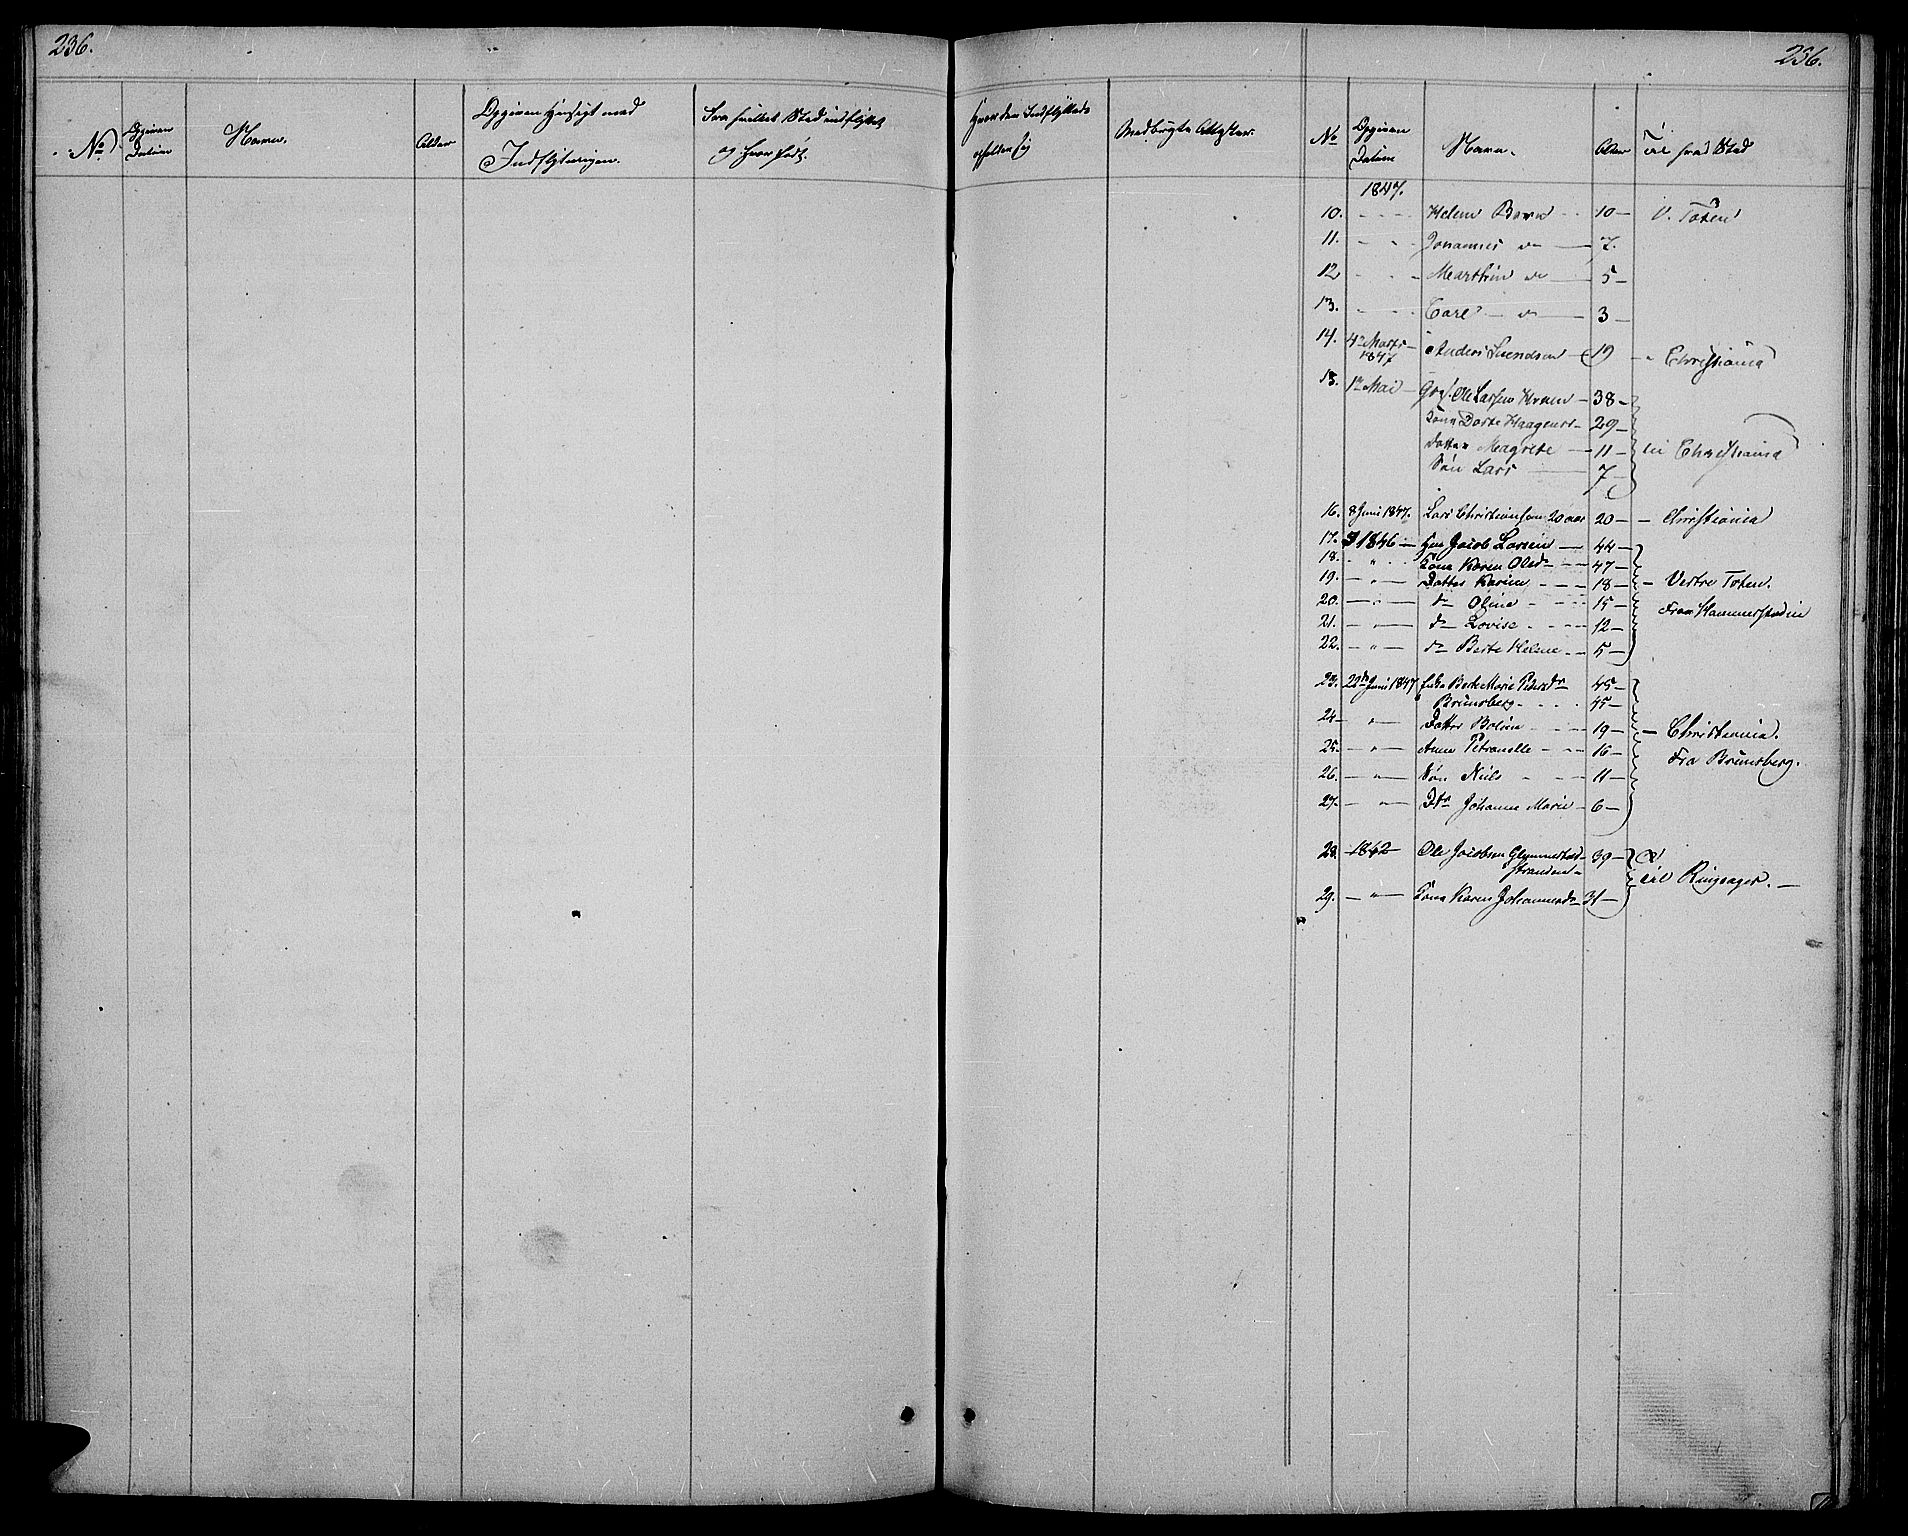 236.
236.
No
Opgiven Datum
Navn.
Alder
Opgiven Hensigt med Indflytningen.
Fra hvilket Sted indflyttet og hvor født.
Hvor den Indflyttede opholder sig
Medbragte Attester.
No
Opgiven Datum
Navn.
Alder
Til hvad Sted
1847.
10. - - - Helene Børn - - 10 - V. Toten
11. - - - Johannes do - 7.
12 - - - Marthin do - 5 -
13. - - - Carl - do - 3 -
14. 4de Marts 1847 - Anders Svendsen - 19 - Christiania
15. 1ste Mai - Ole Larsen - 38 -
Kone Dorte Haagensd - 29 -
Datter Magrete - 11 - til Christiania
Søn Lars - 7 -
16. 8 Juni 1847. Lars Christiansen 20 aar 20 - - Christiania
17. 1846 - Jacob Larsen - 44 -
18. - " - Kone Karen Olsdr - - 47 -
19. - " - Datter Karine - - - 18 - - Vestre Toten.
20. - " - do Oline - - - 15 - Fra Hammerstadin
21. - " - do Lovise - - - 12 -
22. - " - do Berte Helene - - 5 -
23. 22de Juni 1847 Enke Berte Marie Pedersdr 45 -
Brunsberg - - - 45 -
24 - " - Datter Boline - - - 19 - - Christiania.
25. - " - Anne Petronelle - - - 16 - Fra Brunsberg.
26. - " - Søn Niels - - - 11 -
27. - " - Dtr Johanne Marie - 6 -
28. - 1842 - Ole Jacobsen Glemmestad- 39 -
stranden - til Ringsager. -
29. - " - Kone Karen Johannesdr 31 -